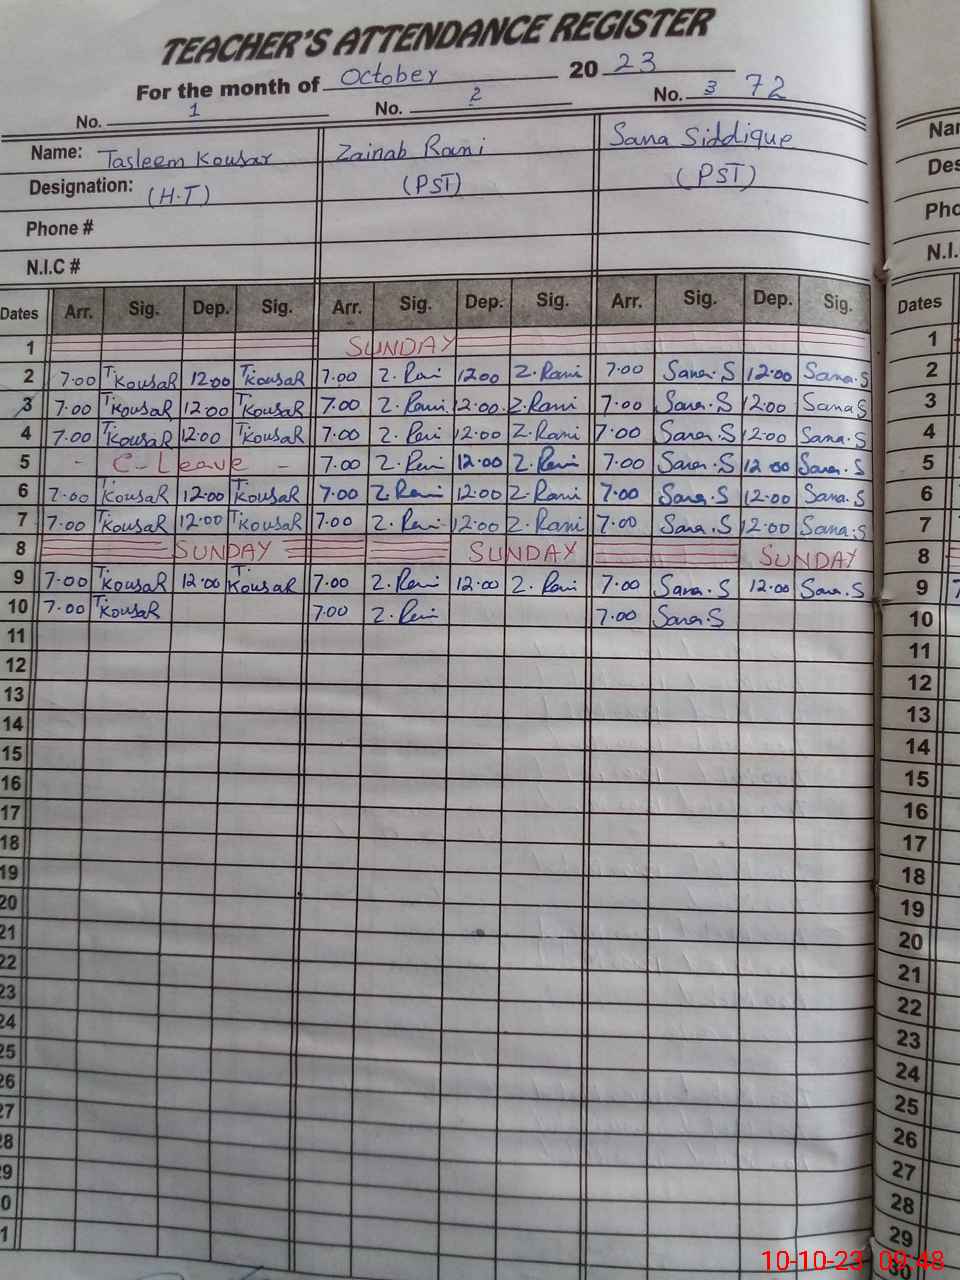 TEACHER'S ATTENDANCE REGISTER
For the month of October 20 23
No. 1 No. 2 No. 3 72
Name: Tasleem Kousar Zainab Rani Sana Siddique Nar
Designation: (H.T) (PST) (PST) Des
Phone # Pho
N.I.C # N.I.
Dates Arr. Sig. Dep. Sig. Arr. Sig. Dep. Sig. Arr. Sig. Dep. Sig. Dates
1 SUNDAY 1
2 7.00 T.KousaR 12.00 T.KousaR 7.00 Z.Rani 12.00 Z.Rani 7.00 Sana.S 12.00 Sana.S 2
3 7.00 T.KousaR 12.00 T.KousaR 7.00 Z.Rani 12.00 Z.Rani 7.00 Sana.S 12.00 Sana S 3
4 7.00 T.KousaR 12.00 T.KousaR 7.00 Z.Rani 12.00 Z.Rani 7.00 Sana.S 12.00 Sana.S 4
5 - C-Leave - 7.00 Z.Rani 12.00 Z.Rani 7.00 Sana.S 12.00 Sana.S 5
6 7.00 T.KousaR 12.00 T.KousaR 7.00 Z.Rani 12.00 Z.Rani 7.00 Sana.S 12.00 Sana.S 6
7 7.00 T.KousaR 12.00 T.KousaR 7.00 Z.Rani 12.00 Z.Rani 7.00 Sana.S 12.00 Sana.S 7
8 SUNDAY SUNDAY SUNDAY 8
9 7.00 T.KousaR 12.00 T.KousaR 7.00 Z.Rani 12.00 Z.Rani 7.00 Sana.S 12.00 Sana.S 9 7
10 7.00 T.KousaR 7.00 Z.Rani 7.00 Sana.S 10
11 11
12 12
13 13
14 14
15 15
16 16
17 17
18 18
19 19
20 20
21 21
22 22
23 23
24 24
25 25
26 26
27 27
28 28
29 29
0 30
1
10-10-23 09:48